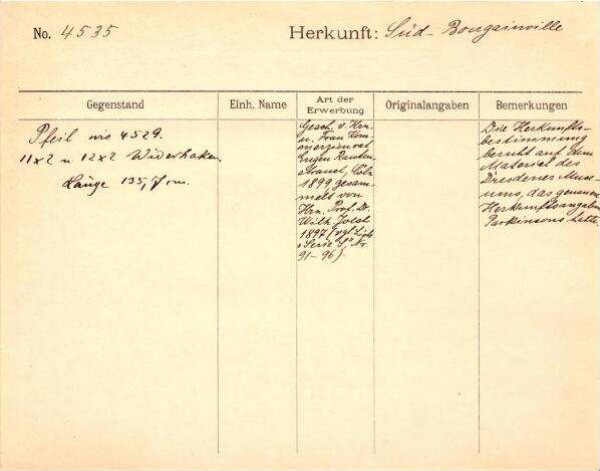 No. 4535
Herkunft: Süd-Bougainville
Gegenstand
Einh. Name
Art der Erwerbung
Originalangaben
Bemerkungen
Pfeil wie 4529.
11x2 u 12x2 Widerhaken
Länge 135,7 cm.
Gesch. v. Hrn.
u. Frau Kom-
merzienrat
Eugen Rauten-
strauch, Cöln
1899, gesam-
melt von
Hrn. Prof. Dr.
Wilh. Joest
1897 (vgl. Liste
Serie S, Nr.
91-96).
Die Herkunfts-
bestimmung
beruht auf dem
Material des
Dresdener Muse-
ums, das genaue
Herkunftsangaben
Parkinsons hatte.